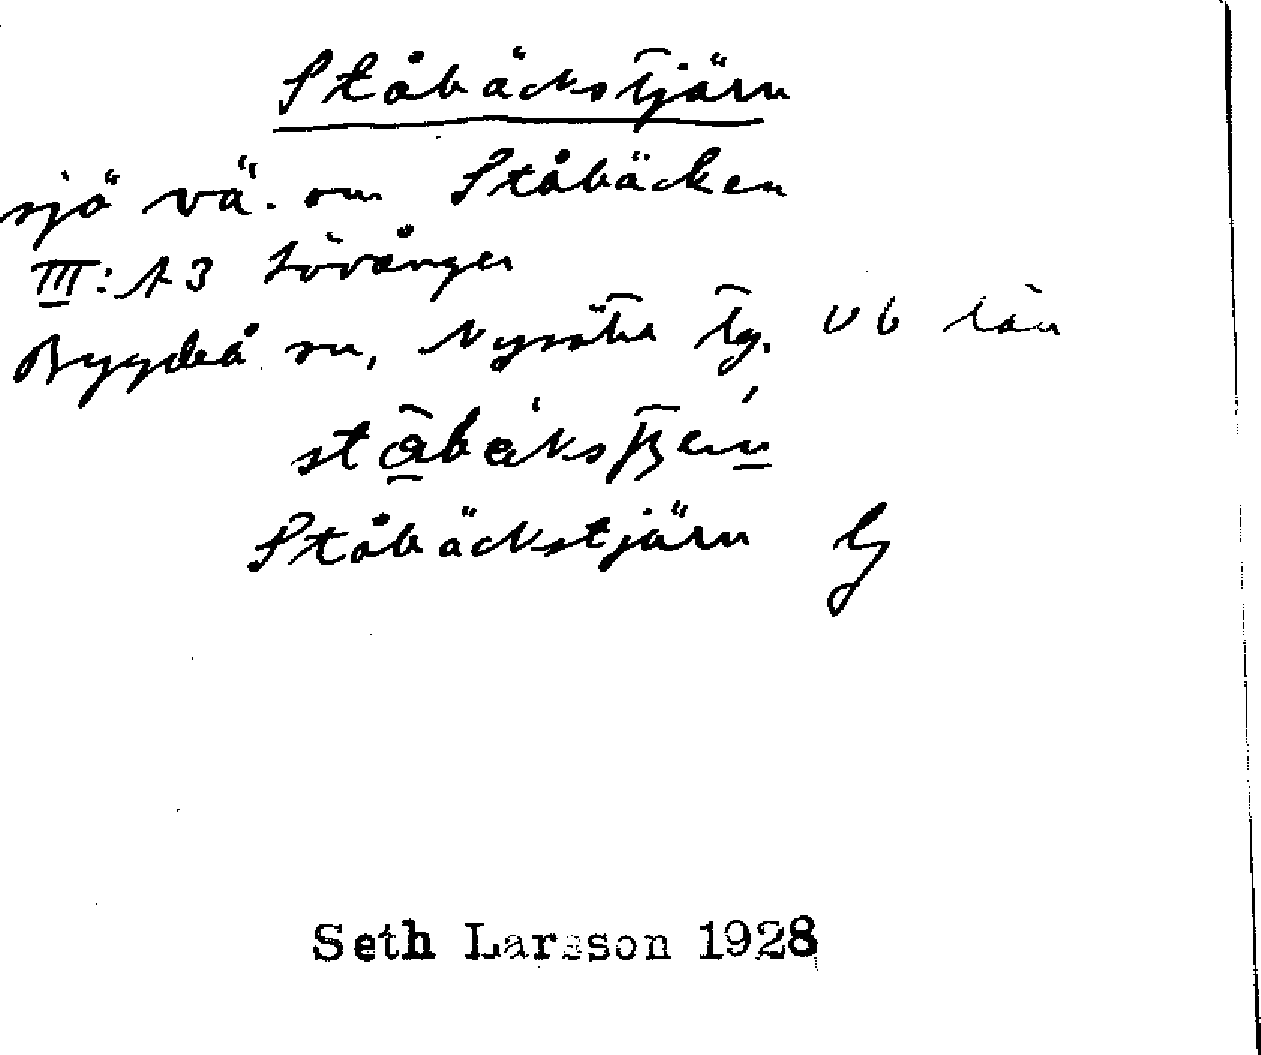 Ståbäckstjärn
sjö vä. om Ståbäcken
III:13 Lövånger
Bygdeå sn, Nysätra tg. Vb län
Ståbäckstjärn
Seth Larsson 1928